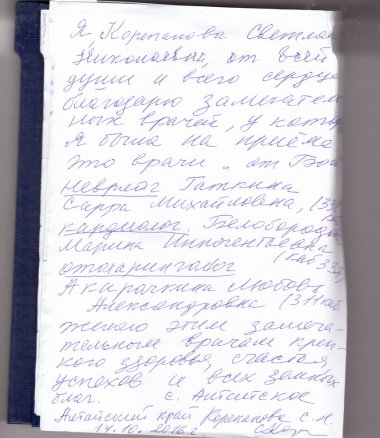 Я, Корепанова Светлан
Николаевна, от всей
души и всего сердца
благодарю замечатель
ных врачей, у котор
Я была на приёме
это врачи „ от Бога
невролог Гаткина
Сарра Михайловна, (33
кардиолог Белобородова
Марина Иннокентьевна
(каб 335
отоларинголог
Акарачкина Любовь
Александровна (311 каб.
желаю этим замеча-
тельным врачам креп-
кого здоровья, счастья,
успехов и всех земных
благ. с. Алтайское
Алтайский край Корепанова С.Н.
14.10.2016 г